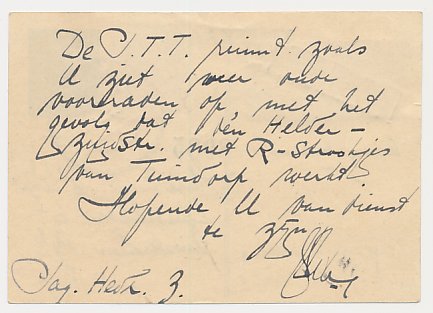 De P.T.T. ruimt zoals
U ziet weer oude
voorraden op met het
gevolg dat den Helder-
Zuidstr. met R-Strookjes
van Tuindorp werkt.
Hopende U van dienst
te zijn
Jag. Hedk. 3.